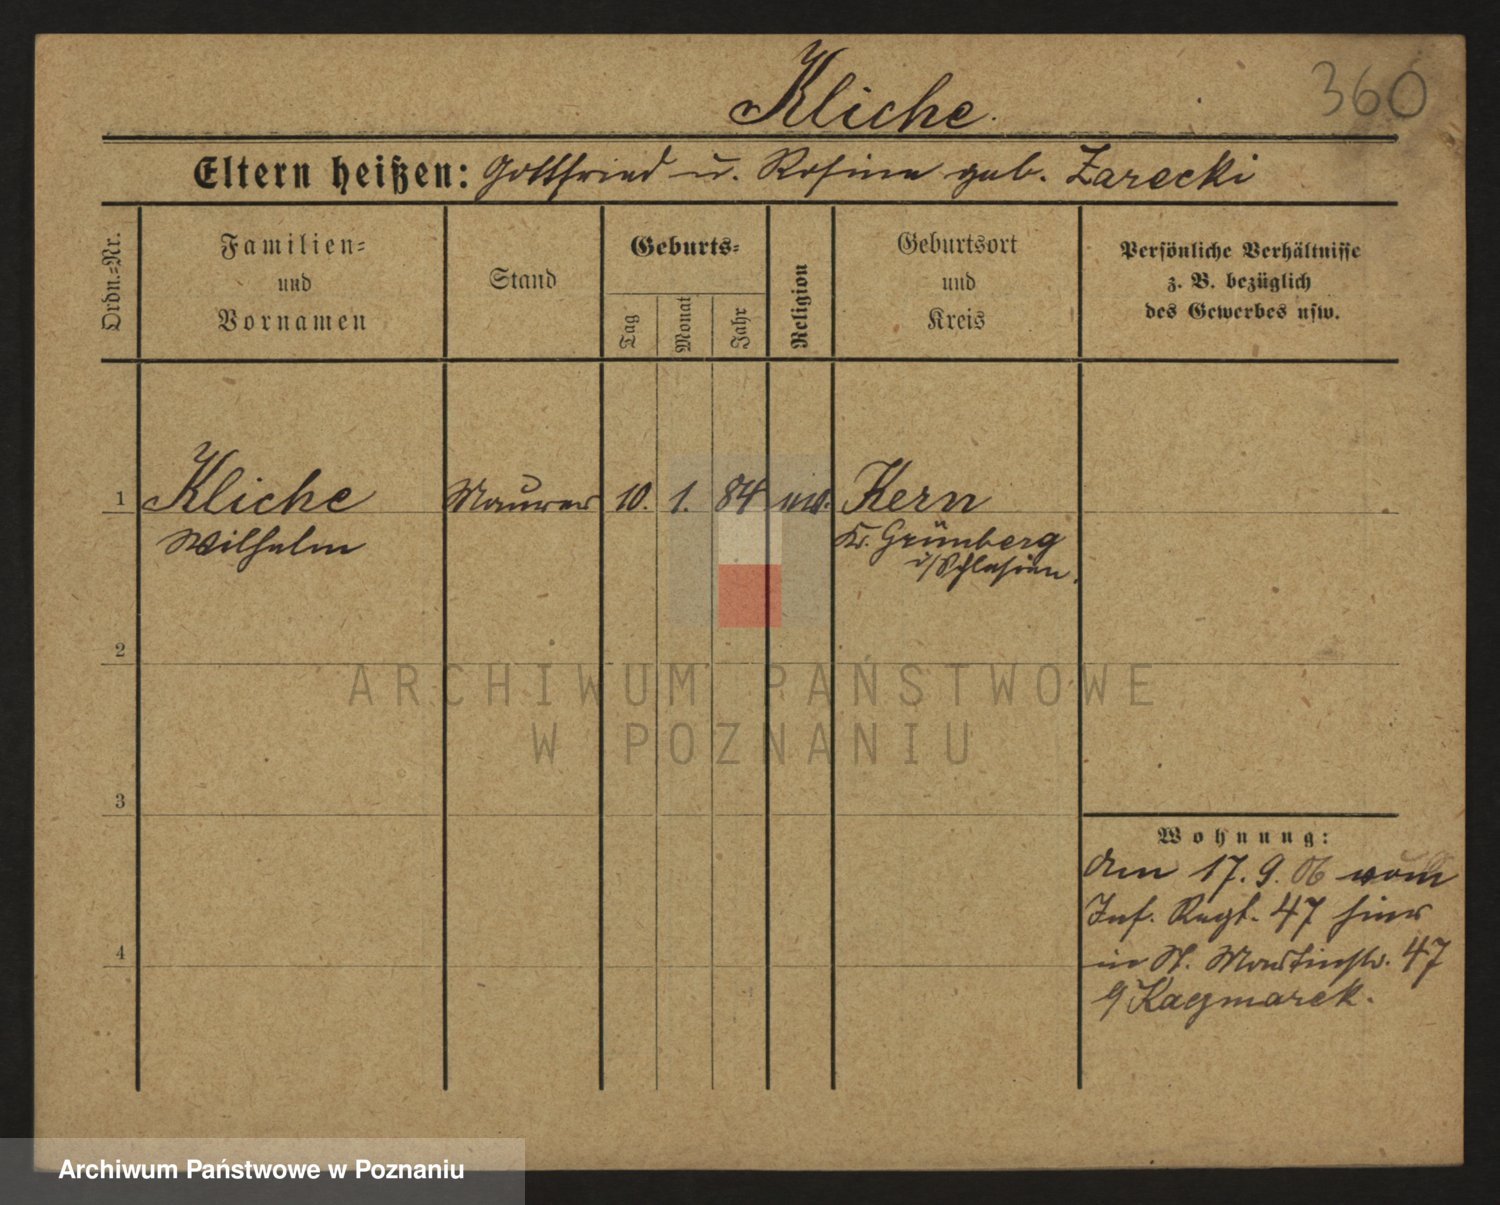 360
Kliche.
Eltern heißen: Gottfried u. Rosina geb. Zarecki
Ordn.=Nr.
Familien=
und
Vornamen
Stand
Geburts=
Tag
Monat
Jahr
Religion
Geburtsort
und
Kreis
Persönliche Verhältnisse
z. B. bezüglich
des Gewerbes usw.
1 Kliche Maurer 10. 1. 84 Kern
Wilhelm Kr. Grünberg
i/Schlesien.
2
3
4
Wohnung:
17. 9. 06 vom
Inf. Regt. 47 hier
in St. Martinstr. 47
Kaczmarek.
ARCHIWUM PAŃSTWOWE
W POZNANIU
Archiwum Państwowe w Poznaniu